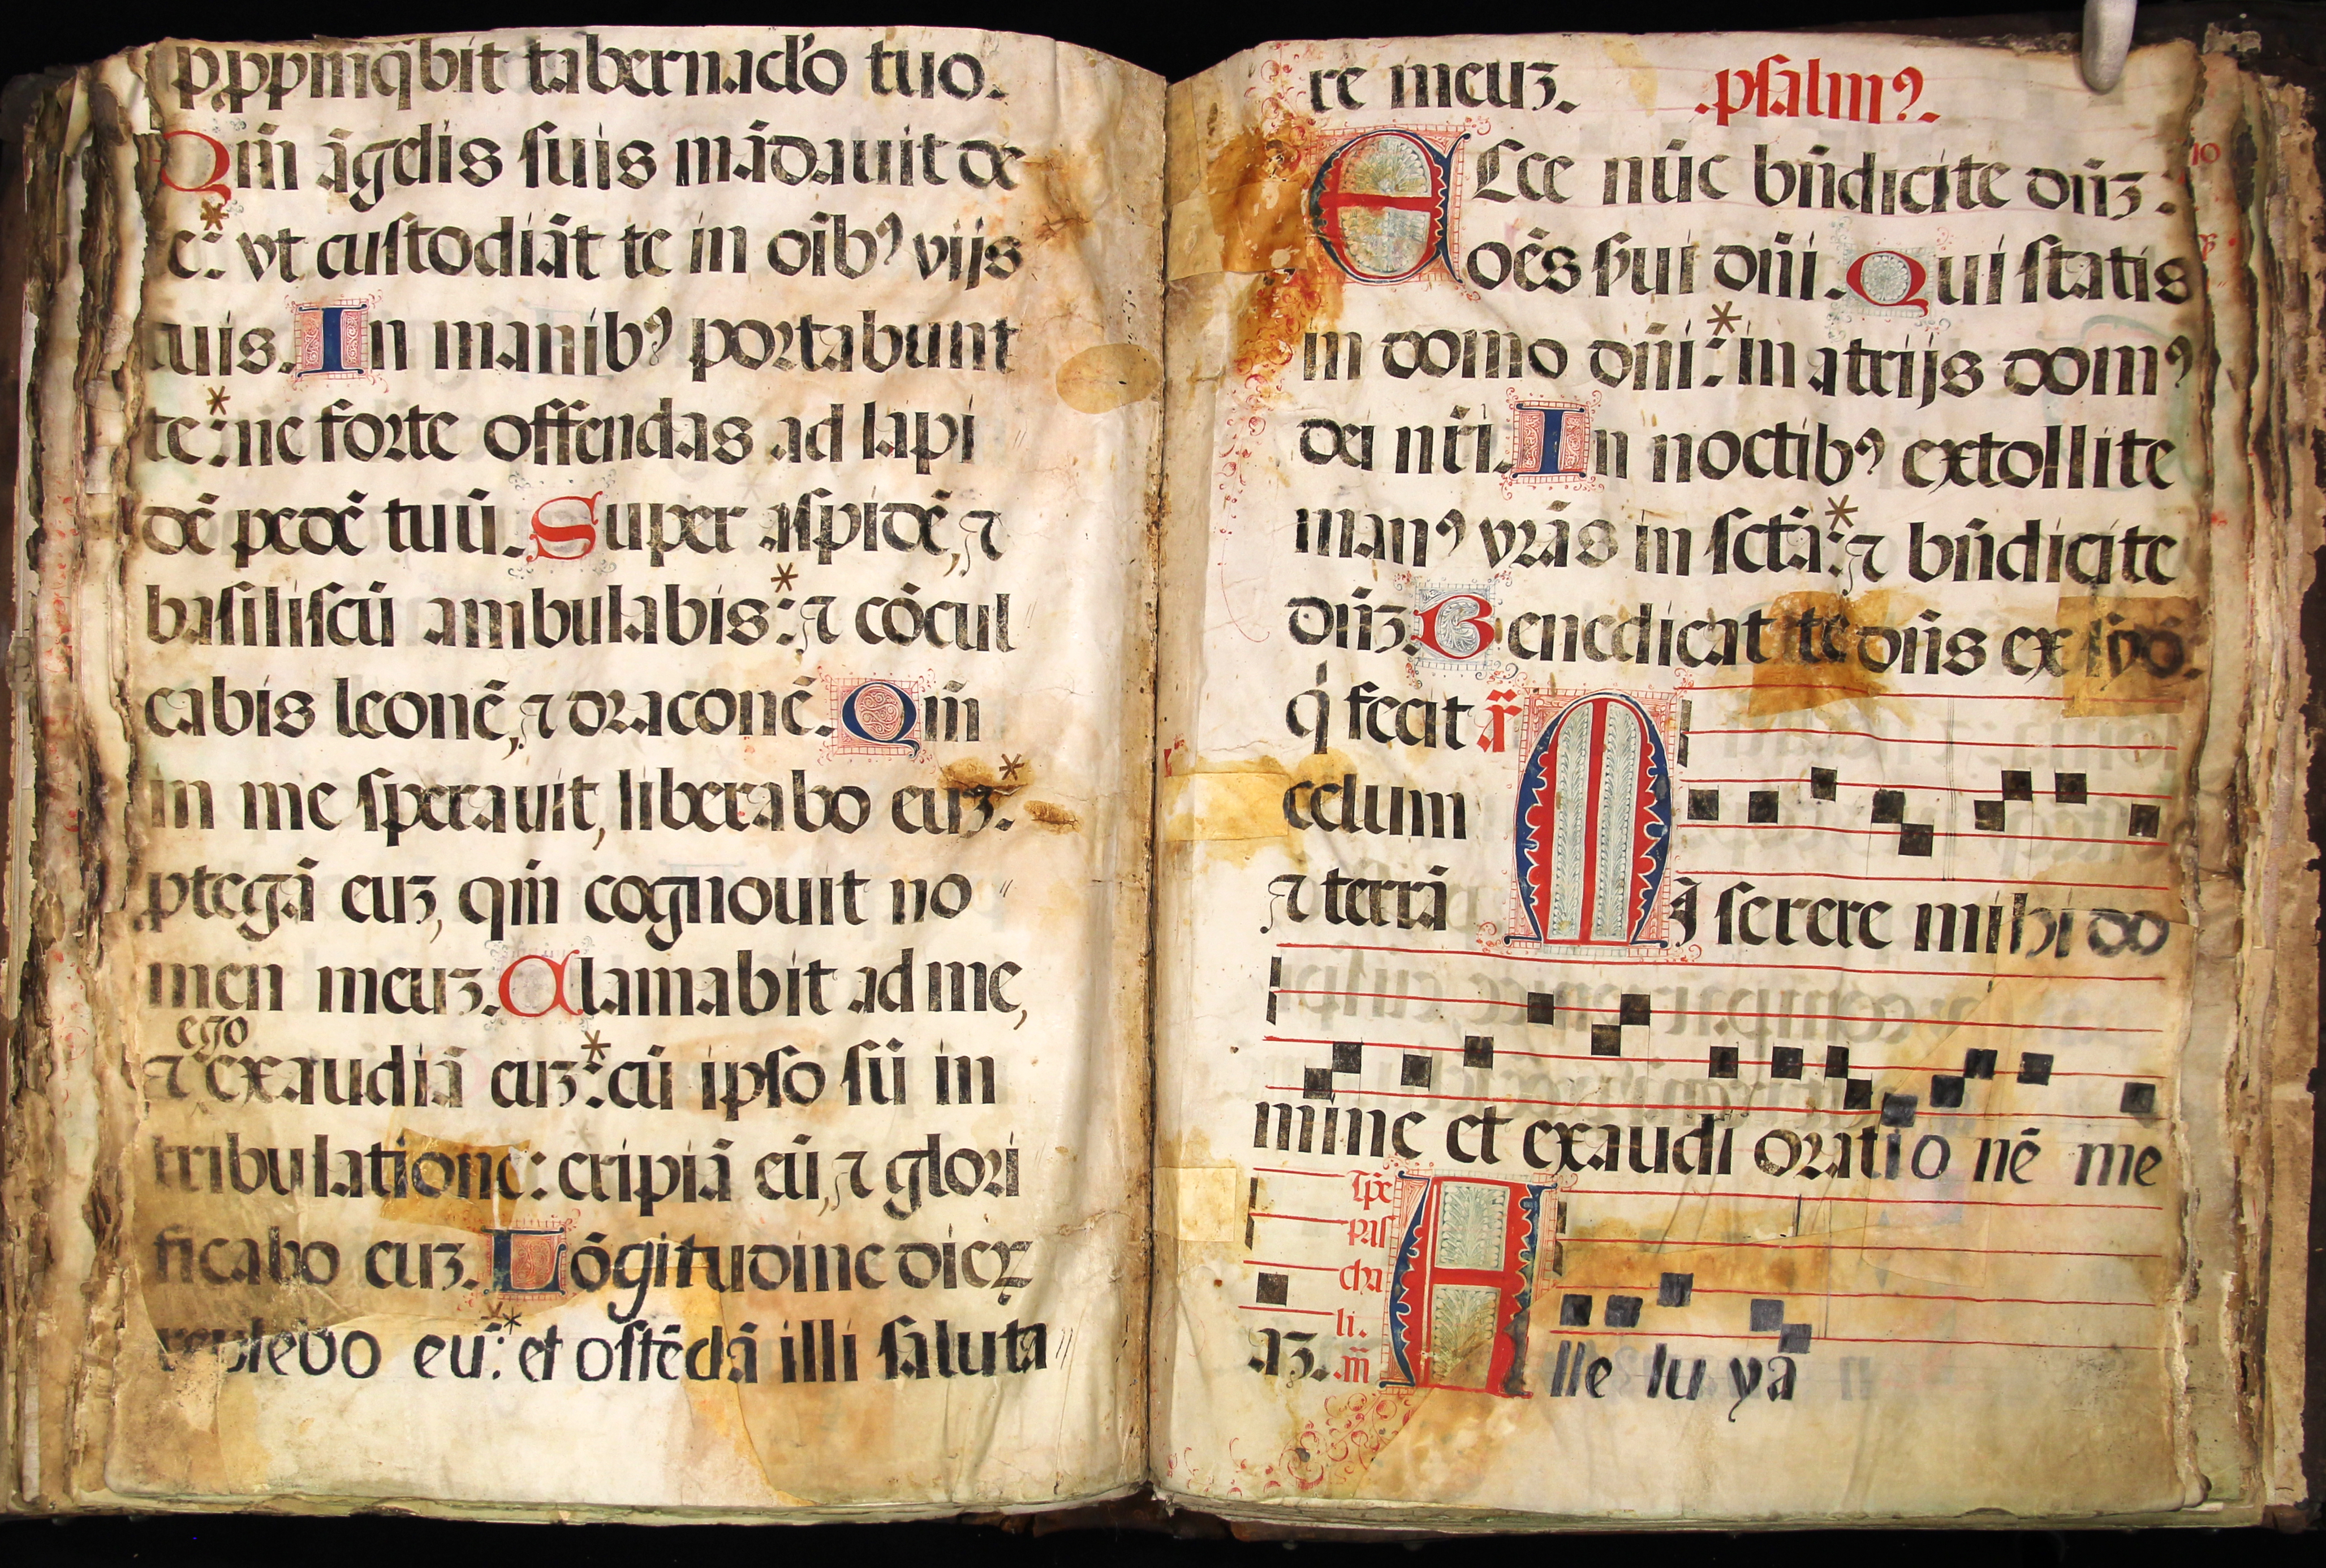 p̱pinq̄bit tabernac̄lo tuo.
Qm̄ āgelis suis mādauit de
te: vt custodiāt te in oīb⁹ vijs
tuis. In manib⁹ portabunt
te: ne forte offendas ad lapi
dē pedē tuū. Super aspidē, ⁊
basiliscū ambulabis: ⁊ cōcul
cabis leonē, ⁊ draconē. Qm̄
in me sperauit, liberabo euʒ:
ꝓtegā euʒ, qm̄ cognouit no
men meuʒ. Clamabit ad me,
ego
⁊ exaudiā euʒ: cū ipso sū in
tribulatione: eripiā eū, ⁊ glori
ficabo euʒ. Lōgitudine dieꝝ
replebo eū: et ostēdā illi saluta
re meuʒ. .psalm⁹.
ECce nūc bn̄dicite dn̄ʒ:
oēs ẜui dn̄i. Qui statis
in domo dn̄i: in atrijs dom⁹
dei nr̄i. In noctib⁹ extollite
man⁹ vr̄as in sctā: ⁊ bn̄dicite
dn̄ʒ. Benedicat te dn̄s ex syō.
q̇ fecit ā
celum
⁊ terrā MI serere mihi do
mine et exaudi oratio nē me
Tp̄e
pas
cha
li.
aʒ. .añ. Alle lu ya
10